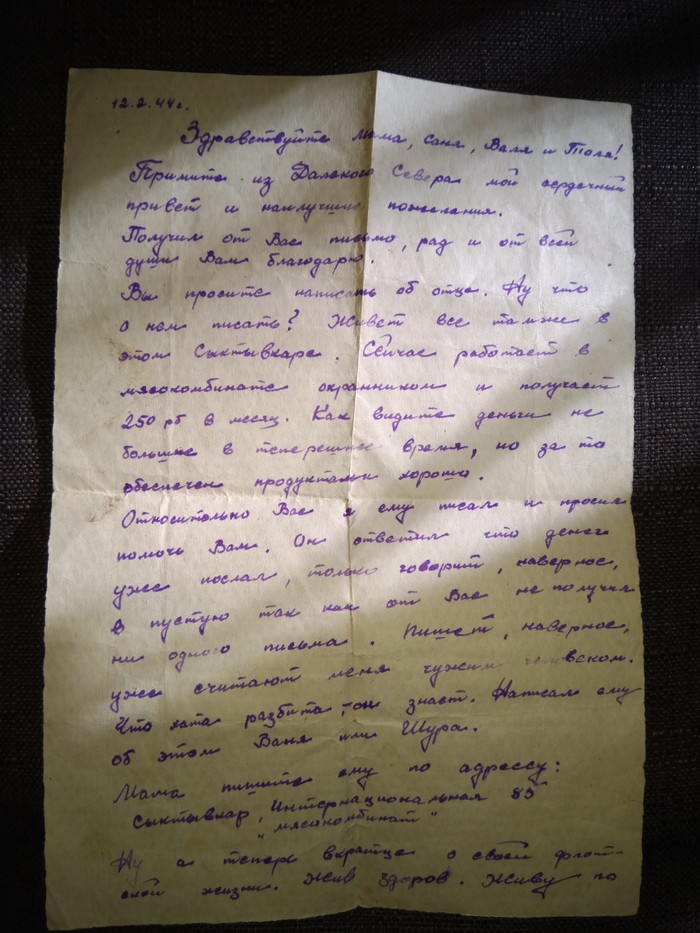 12.2.44г.
Здравствуйте Мама, Саня, Валя и Толя!
Примите из Далекого Севера мой сердечный
привет и наилучшие пожелания.
Получил от Вас письмо, рад и от всей
души Вам благодарю.
Вы просите написать об отце. Ну что
о нем писать? Живет все там же в
этом Сыктывкаре. Сейчас работает в
мясокомбинате охранником и получает
250 рб в месяц. Как видите деньги не
большие в теперешнее время, но за то
обеспечен продуктами хорошо.
Относительно Вас я ему писал и просил
помочь Вам. Он ответил что денег
уже послал, только говорит, наверное,
в пустую так как от Вас не получил
ни одного письма. Пишет, наверное,
уже считают меня чужим человеком.
Что хата разбита, он знает. Написал ему
об этом Ваня или Шура.
Мама пишите ему по адрессу:
Сыктывкар, Интернациональная 85
"мясокомбинат"
Ну а теперь вкратце о своей флот-
ской жизни. Жив здоров. Живу по